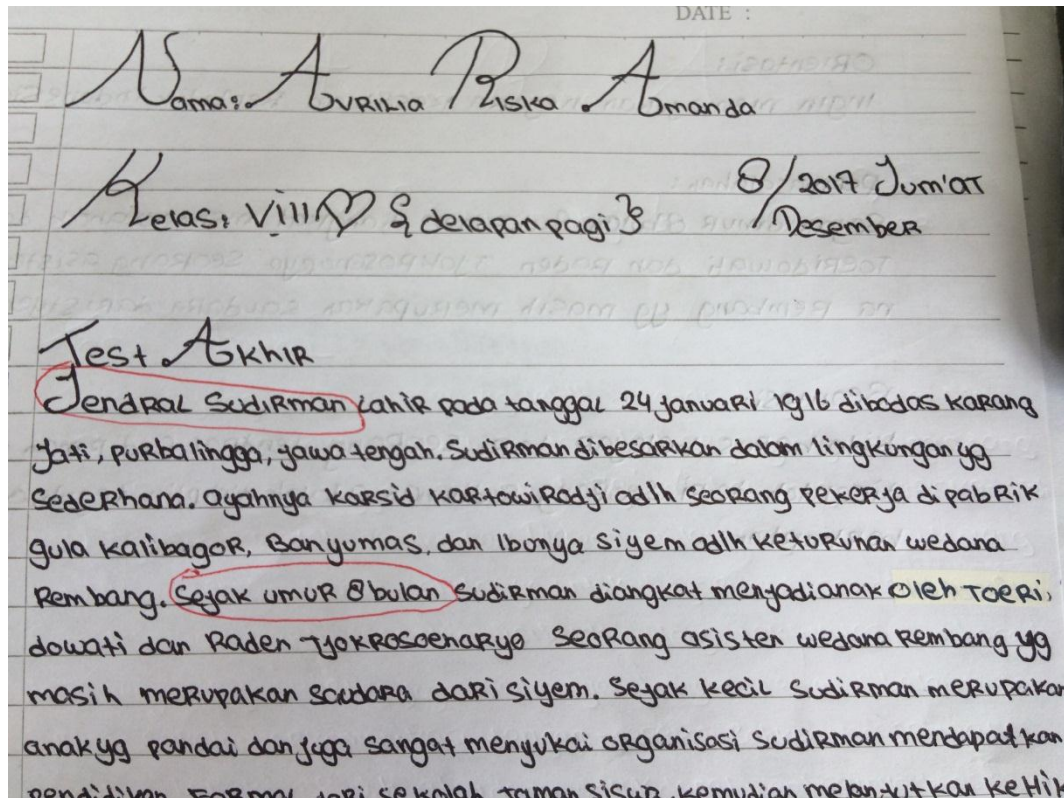 DATE :
Nama: Avrilia Riska Amanda
Kelas: VIII♡ {delapan pagi}
8/2017 Jum'at
Desember
Test Akhir
Jendral Sudirman Lahir pada tanggal 24 januari 1916 dibodas karang
jati, purbalingga, jawa tengah. Sudirman dibesarkan dalam lingkungan yg
sederhana. ayahnya karsid kartowirodji adlh seorang pekerja dipabrik
gula kalibagor, Banyumas, dan Ibunya siyem adlh keturunan wedana
Rembang. Sejak umur 8 bulan Sudirman diangkat menjadianak oleh Toeri,
dowati dan Raden Tjokrosoenaryo seorang asisten wedana Rembang yg
masih merupakan saudara dari siyem. Sejak kecil Sudirman merupakan
anak yg pandai dan juga sangat menyukai organisasi Sudirman mendapatkan
pendidikan Formal dari sekolah taman siswa, kemudian melanjutkan ke Hi